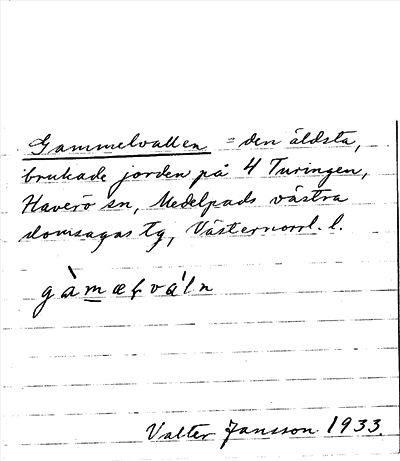 Gammelvallen = den äldsta,
brukade jorden på 4 Turingen,
Haverö sn, Medelpads västra
domsagas tg, Västernorrl. l.
gàmæḷváln
Valter Jansson 1933.